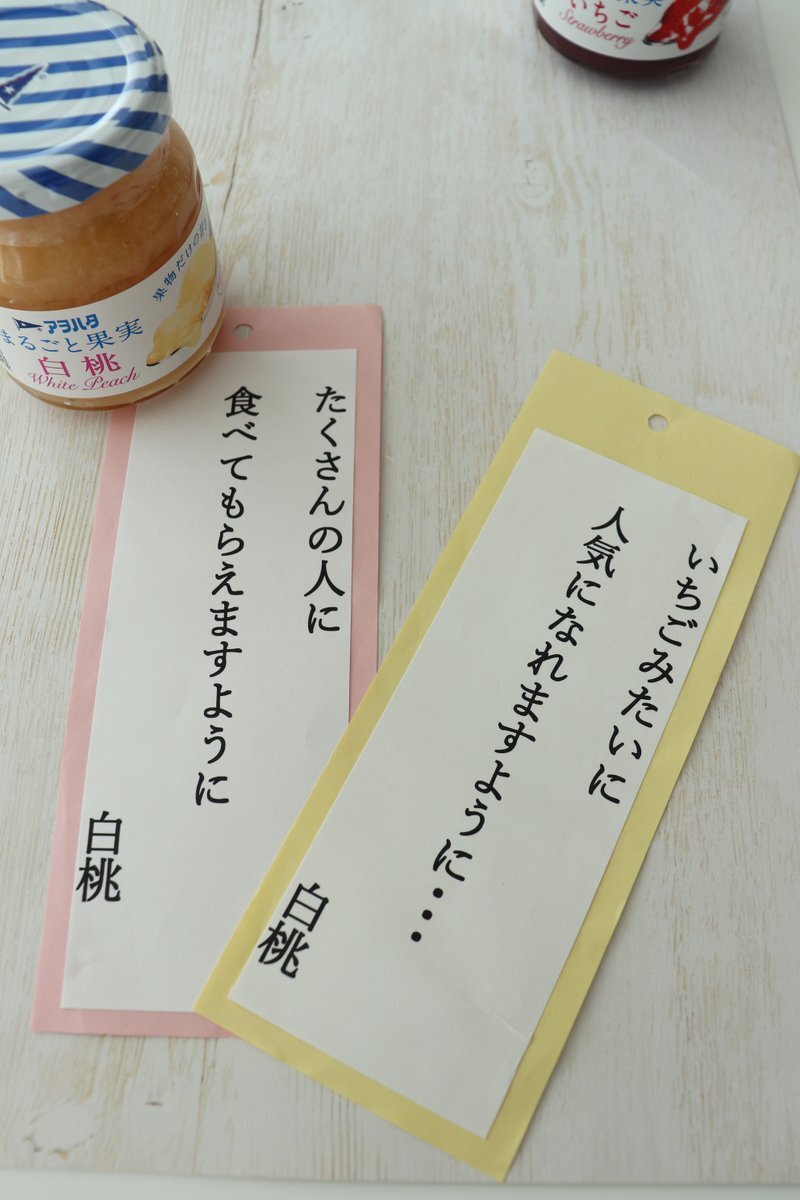 アヲハタ
まるごと果実
白桃
White Peach
果物だけの
いちご
Strawberry
たくさんの人に
食べてもらえますように
白桃
いちごみたいに
人気になれますように・・・
白桃